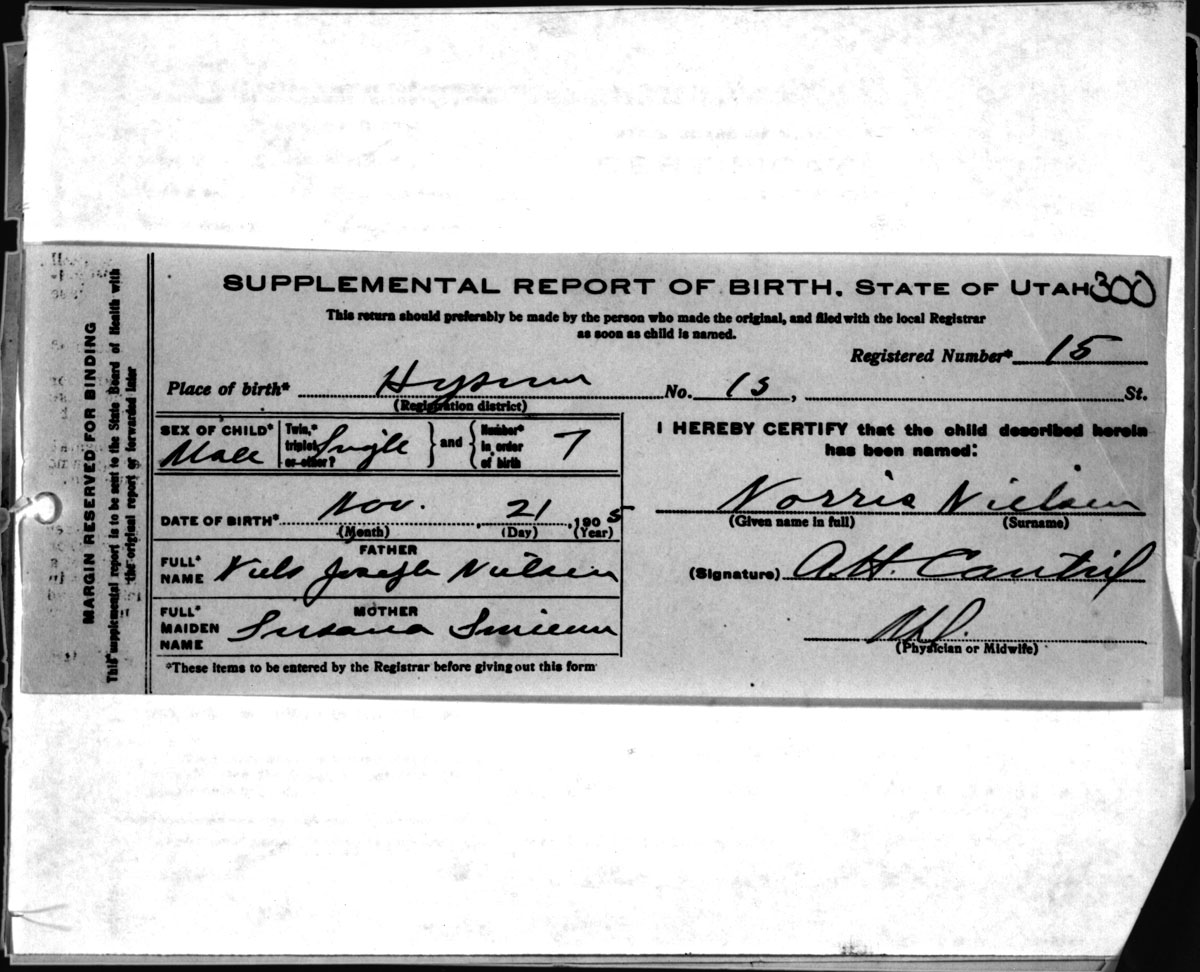 SUPPLEMENTAL REPORT OF BIRTH. STATE OF UTAH 300
This return should preferably be made by the person who made the original, and filed with the local Registrar
as soon as child is named.
Registered Number* 15
Place of birth* Hyrum No. 13, St.
(Registration district)
SEX OF CHILD* Male
Twin,* triplet or other? Single
and
Number* in order of birth 7
DATE OF BIRTH* Nov. 21, 1905
(Month) (Day) (Year)
FATHER
FULL* NAME Niels Joseph Nielsen
MOTHER
FULL* MAIDEN NAME Susana
*These items to be entered by the Registrar before giving out this form
I HEREBY CERTIFY that the child described herein
has been named:
Norris Nielsen
(Given name in full) (Surname)
(Signature) A.H. Cantril
MD.
(Physician or Midwife)
MARGIN RESERVED FOR BINDING
This supplemental report is to be sent to the State Board of Health with
the original report or forwarded later